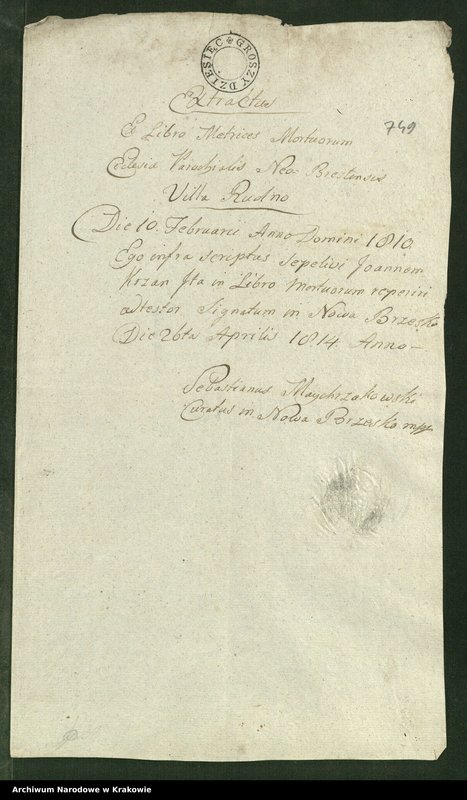 DZIESIĘC GROSZY
749
Extraktus
Ex Libro Metrices Mortuorum
Eclesiæ Parochialis Neo Brestensis
Villa Rudno
Die 10. Februarii Anno Domini 1810.
Ego infra scriptus sepelivi Joannem
Krzan Jta in Libro Mortuorum reperiri
adtestor Signatum in Nowa Brzesko
Die 26ta Aprilis 1814. Anno —
Sebastianus Maychrzakowski
Curatus in Nowa Brzesko mpp
Archiwum Narodowe w Krakowie